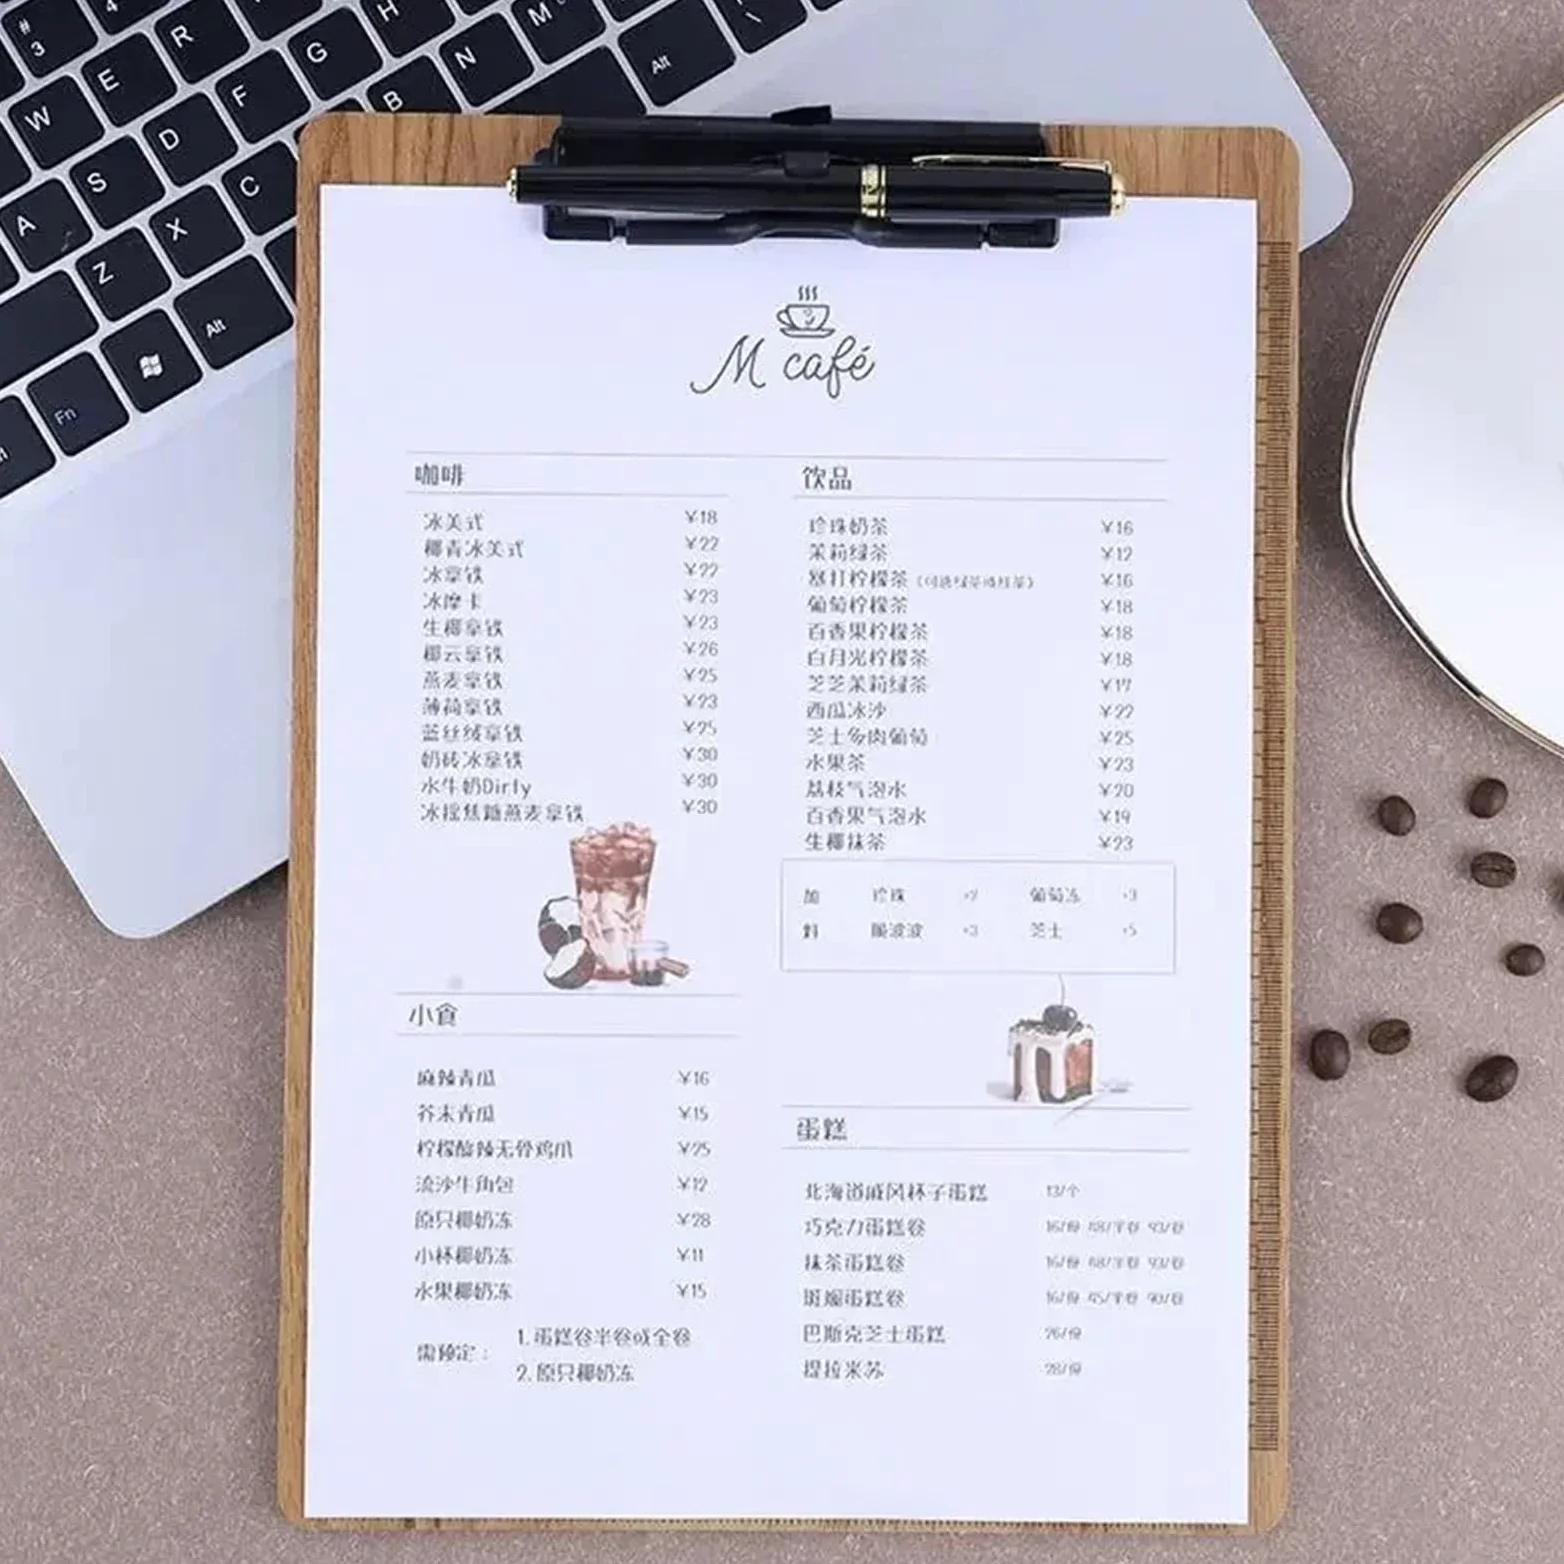 # 3
4
R
H
M
\
W
E
F
G
N
Alt
D
B
A
S
X
C
Z
Alt
Fn
M café
咖啡
冰美式 ¥18
椰青冰美式 ¥22
冰拿铁 ¥22
冰摩卡 ¥23
生椰拿铁 ¥23
椰云拿铁 ¥26
燕麦拿铁 ¥25
薄荷拿铁 ¥23
蓝丝绒拿铁 ¥25
奶砖冰拿铁 ¥30
水牛奶Dirty ¥30
冰摇焦糖燕麦拿铁 ¥30
饮品
珍珠奶茶 ¥16
茉莉绿茶 ¥12
暴打柠檬茶（可选绿茶或红茶） ¥16
葡萄柠檬茶 ¥18
百香果柠檬茶 ¥18
白月光柠檬茶 ¥18
芝芝茉莉绿茶 ¥17
西瓜冰沙 ¥22
芝士多肉葡萄 ¥25
水果茶 ¥23
荔枝气泡水 ¥20
百香果气泡水 ¥19
生椰抹茶 ¥23
加 珍珠 +2 葡萄冻 +3
料 脆波波 +3 芝士 +5
小食
麻辣青瓜 ¥16
芥末青瓜 ¥15
柠檬酸辣无骨鸡爪 ¥25
流沙牛角包 ¥12
原只椰奶冻 ¥28
小杯椰奶冻 ¥11
水果椰奶冻 ¥15
需预定：
1.蛋糕卷半卷或全卷
2.原只椰奶冻
蛋糕
北海道戚风杯子蛋糕 13/个
巧克力蛋糕卷 16/份 48/半卷 93/卷
抹茶蛋糕卷 16/份 48/半卷 93/卷
斑斓蛋糕卷 16/份 45/半卷 90/卷
巴斯克芝士蛋糕 26/份
提拉米苏 28/份